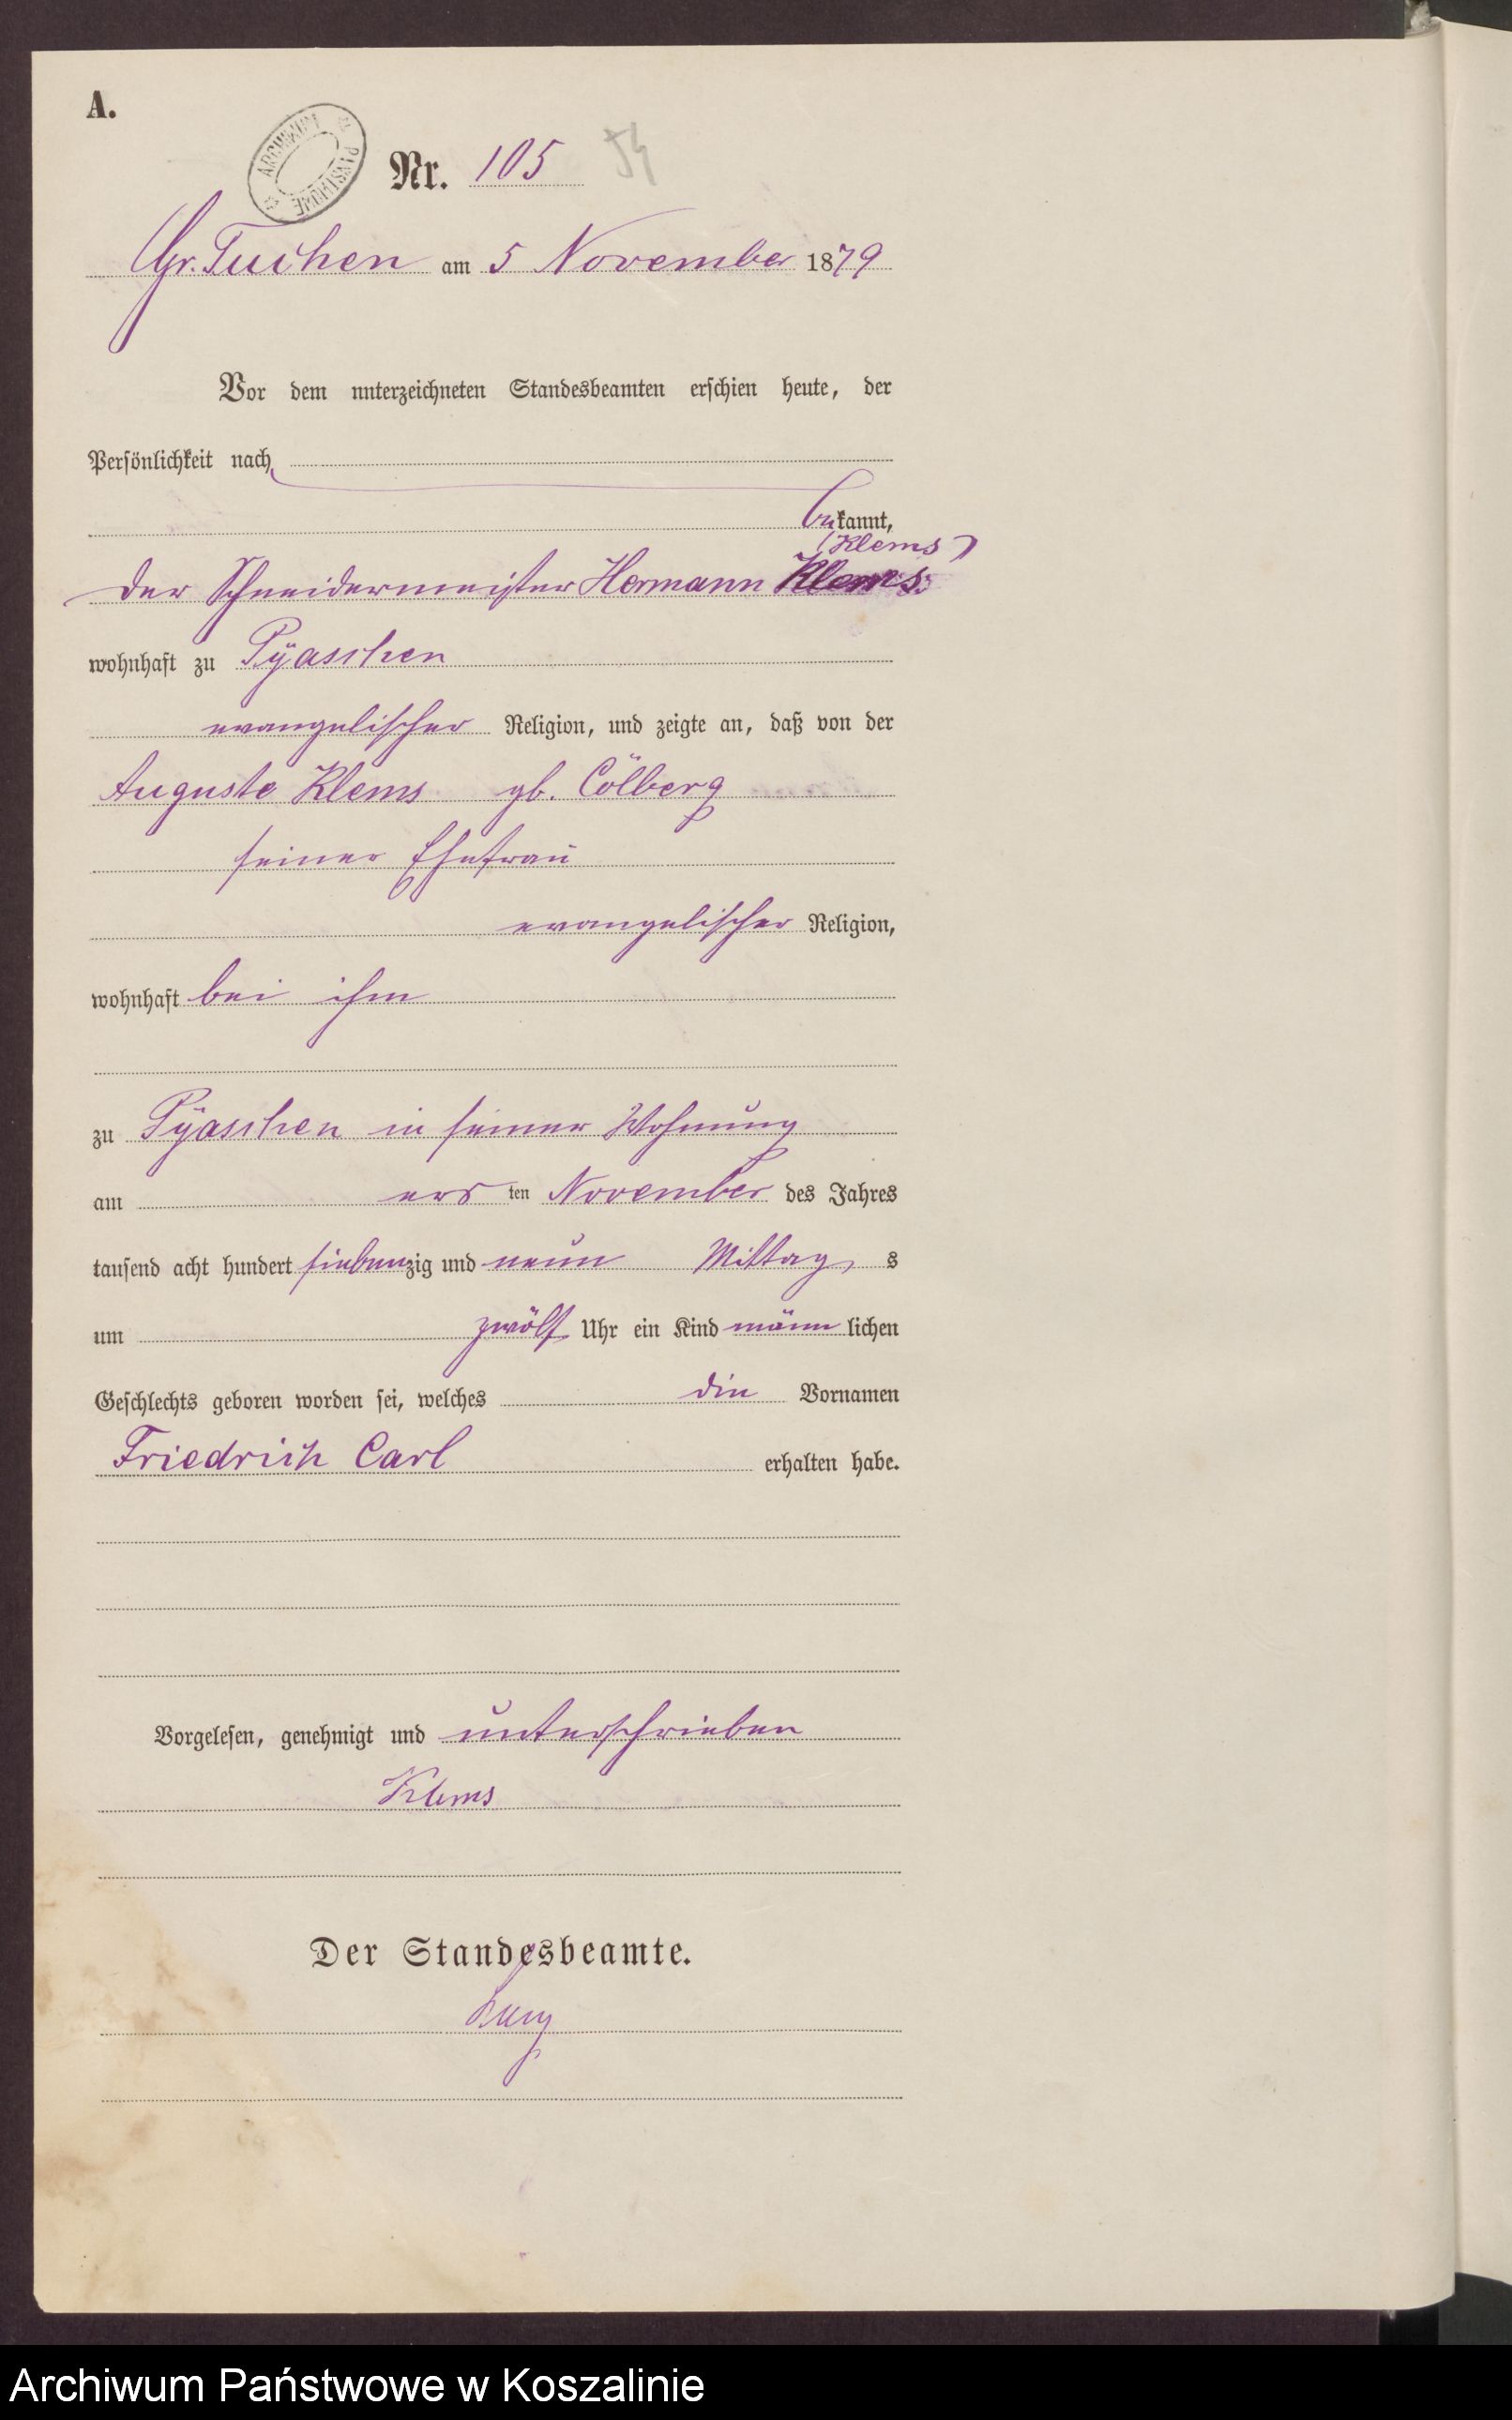 A.
ARCHIWUM PAŃSTWOWE
Nr. 105 54
Gr. Tuchen am 5 November 1879
Vor dem unterzeichneten Standesbeamten erschien heute, der
Persönlichkeit nach
bekannt,
(Klems)
der Schneidermeister Hermann Klems
wohnhaft zu Pÿaschen
evangelischer Religion, und zeigte an, daß von der
Auguste Klems gb. Cölberg
seiner Ehefrau
evangelischer Religion,
wohnhaft bei ihm
zu Pÿaschen in seiner Wohnung
am ersten November des Jahres
tausend acht hundert siebenzig und neun Mittags
um zwölf Uhr ein Kind männlichen
Geschlechts geboren worden sei, welches die Vornamen
Friedrich Carl erhalten habe.
Vorgelesen, genehmigt und unterschrieben
Klems
Der Standesbeamte.
Archiwum Państwowe w Koszalinie